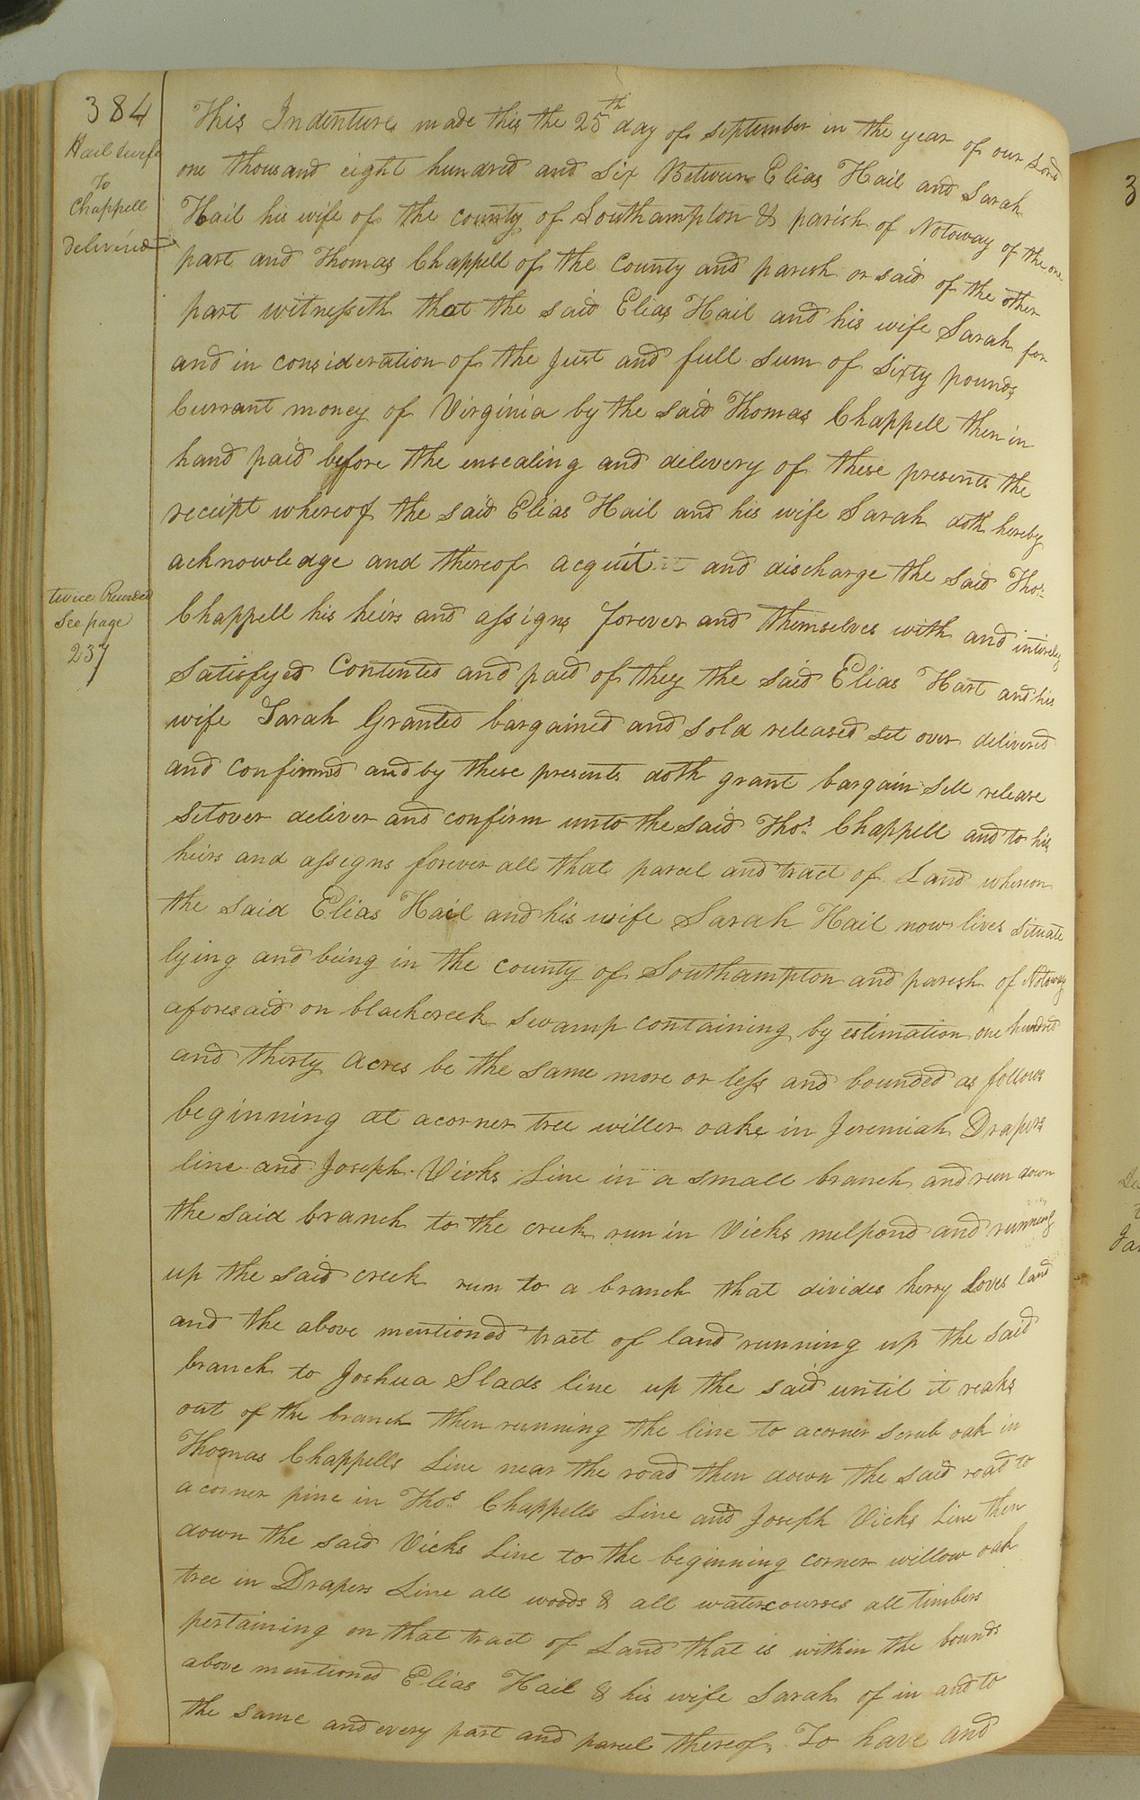 384
Hail & wife
To
Chappell
delivered
This Indenture made this the 25th day of September in the year of our Lord
one thousand eight hundred and six Between Elias Hail and Sarah
Hail his wife of the county of Southampton & parish of Notoway of the one
part and Thomas Chappell of the County and parish or said of the other
part witnesseth that the said Elias Hail and his wife Sarah for
and in consideration of the Just and full sum of Sixty pounds
Currant money of Virginia by the said Thomas Chappell then in
hand paid before the ensealing and delivery of these presents the
receipt whereof the said Elias Hail and his wife Sarah doth hereby
acknowledge and thereof acquit and discharge the said Thos.
Chappell his heirs and assigns forever and themselves with and intirely
Satisfyed Contented and paid of they the said Elias Hart and his
wife Sarah Granted bargained and sold released set over delivered
and confirmed and by these presents doth grant bargain Sell release
Setover deliver and confirm unto the said Thos. Chappell and to his
heirs and assigns forever all that parcel and tract of Land whereon
the said Elias Hail and his wife Sarah Hail now lives Situate
lying and being in the county of Southampton and parish of Notoway
aforesaid on blackcreek Swamp containing by estimation one hundred
and thirty acres be the same more or less and bounded as follows
beginning at a corner tree willer oake in Jeremiah Drapers
line and Joseph Vicks Line in a small branch and run down
the said branch to the creek run in Vicks melpond and running
up the said creek run to a branch that divides henry Loves land
and the above mentioned tract of land running up the said
branch to Joshua Slads line up the said until it reaks
out of the branch then running the line to a corner scrub oak in
Thomas Chappells Line near the road then down the said road to
a corner pine in Thos. Chappells Line and Joseph Vicks Line then
down the said Vicks Line to the beginning corner willow oak
tree in Drapers Line all woods & all watercourses all timbers
pertaining on that tract of Land that is within the bounds
above mentioned Elias Hail & his wife Sarah of in and to
the same and every part and parcel thereof. To have and
twice Recorded
See page
237
3